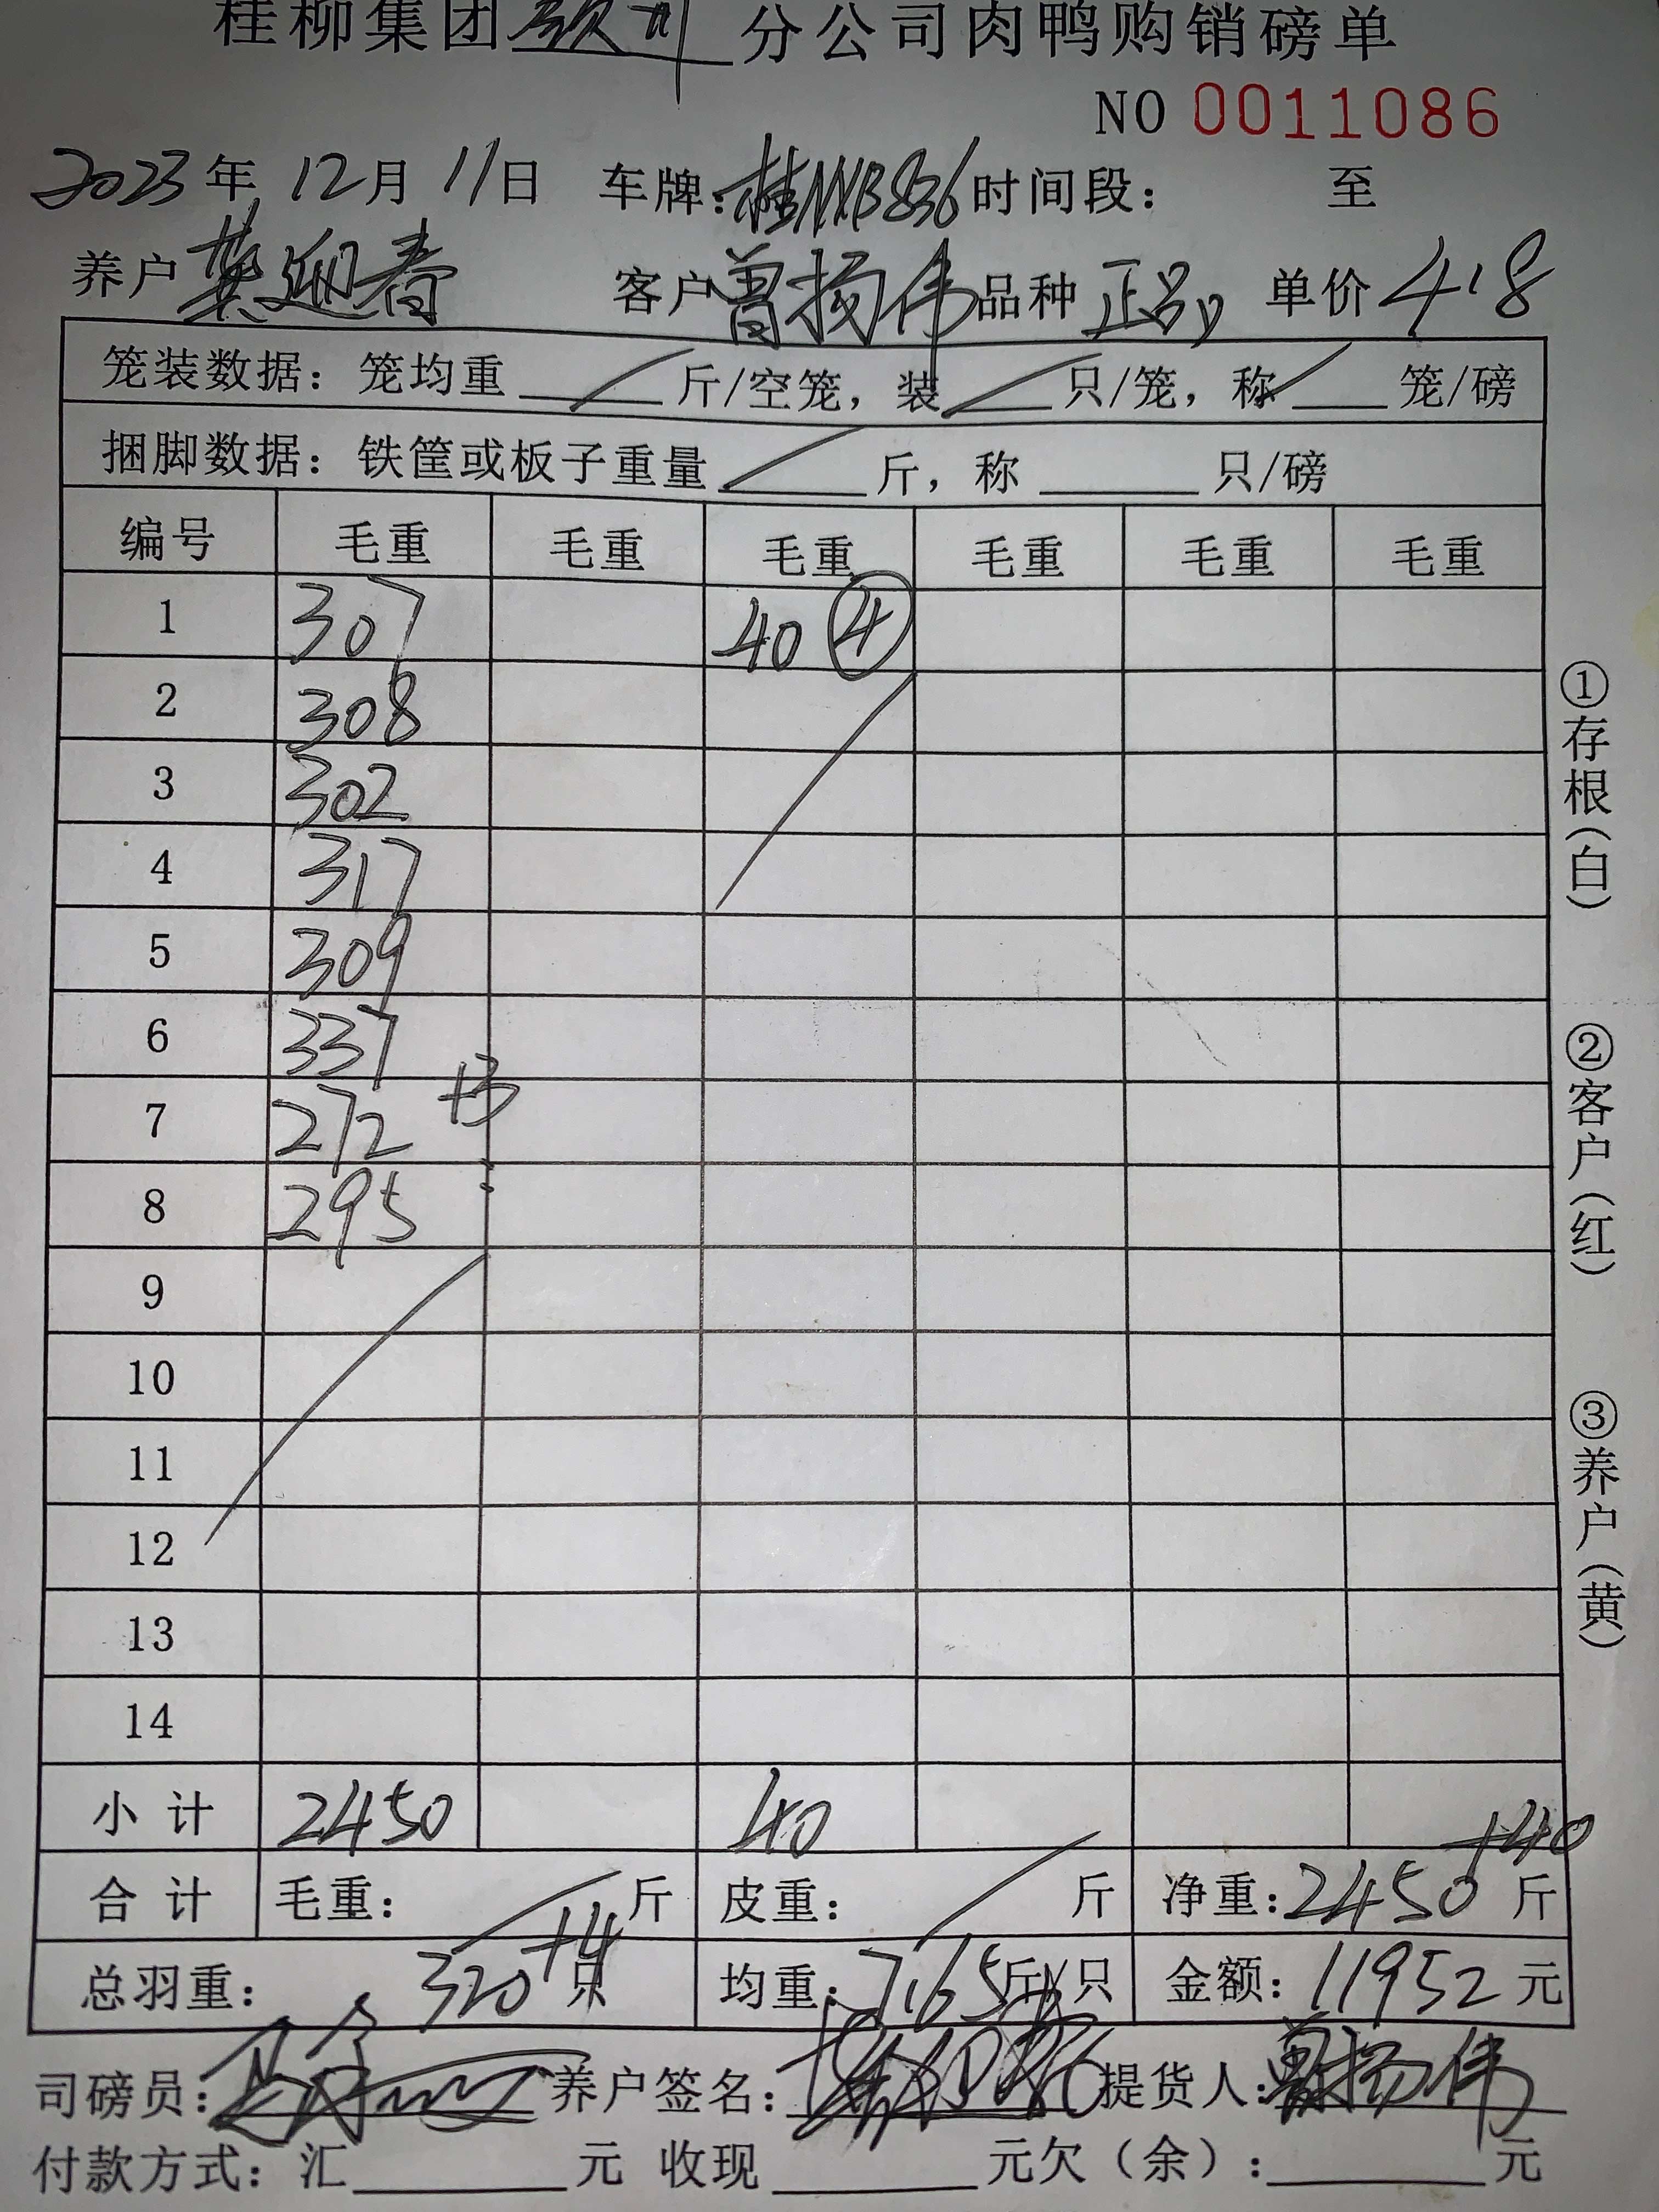 桂柳集团 分公司肉鸭购销磅单
NO 0011086
2023年 12月 11日 车牌:桂NXB836 时间段: 至
养户 龚迎春 客户 曾扬伟 品种 正品 单价 4.8
笼装数据: 笼均重 斤/空笼, 装 只/笼, 称 笼/磅
捆脚数据: 铁筐或板子重量 斤, 称 只/磅
编号 毛重 毛重 毛重 毛重 毛重 毛重
1 307 40 ④
2 308
3 302
4 317
5 309
6 337
7 272 +3
8 295
9
10
11
12
13
14
小 计 2450 40
合 计 毛重: 斤 皮重: 斤 净重:2450+40 斤
总羽重: 320+4 只 均重:7.65斤/只 金额:11952元
司磅员: 养户签名: 提货人:曾扬伟
付款方式: 汇 元 收现 元欠(余): 元
①存根(白)
②客户(红)
③养户(黄)